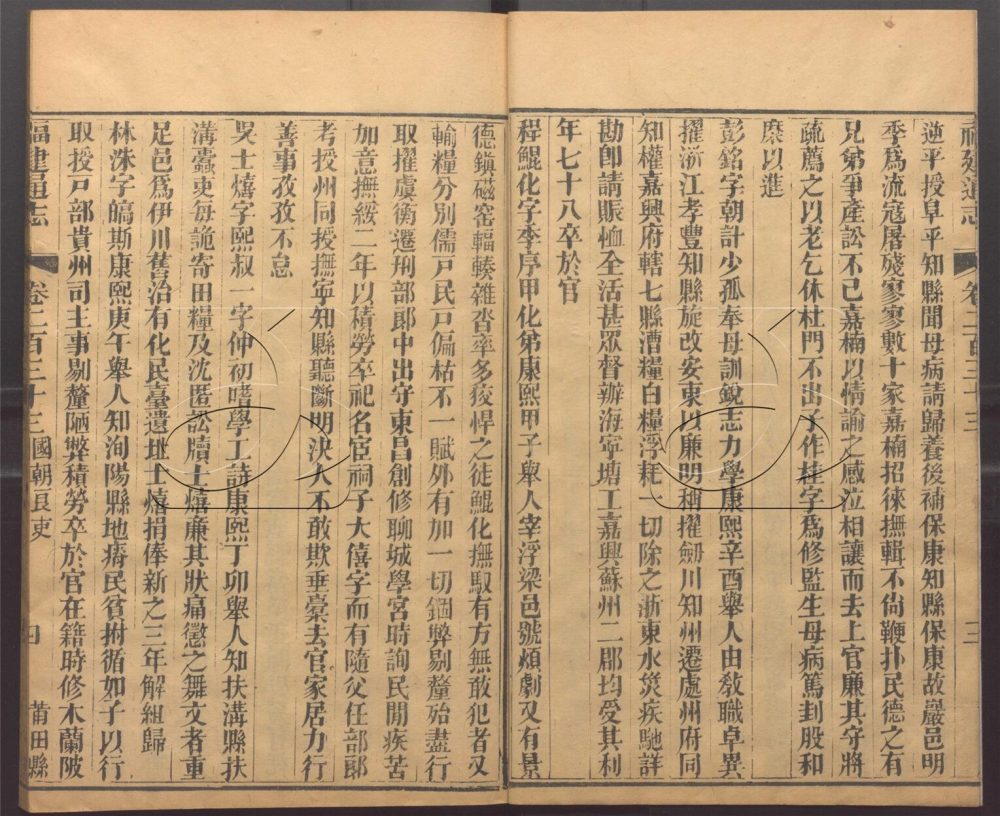 福建通志 卷二百三十三 三
逆平授阜平知縣聞母病請歸養後補保康知縣保康故巖邑明
季爲流寇屠殘寥寥數十家嘉楠招徠撫輯不尙鞭扑民德之有
兄弟爭產訟不已嘉楠以情諭之感泣相讓而去上官廉其守將
疏薦之以老乞休杜門不出子作桂字爲修監生母病篤刲股和
糜以進
彭銘字朝計少孤奉母訓銳志力學康熙辛酉舉人由敎職卓異
擢浙江孝豐知縣旋改安東以廉明稱擢劒川知州遷處州府同
知權嘉興府轄七縣漕糧白糧浮耗一切除之浙東水災疾馳詳
勘卽請賑恤全活甚眾督辦海寧塘工嘉興蘇州二郡均受其利
年七十八卒於官
程鯤化字季序甲化弟康熙甲子舉人宰浮梁邑號煩劇又有景
德鎭磁窰輻輳雜沓率多痠悍之徒鯤化撫馭有方無敢犯者又
輸糧分別儒戸民戸偏枯不一賦外有加一切錮弊剔釐殆盡行
取擢虞衡遷刑部郞中出守東昌創修聊城學宮時詢民閒疾苦
加意撫綏二年以積勞卒祀名宦祠子大僖字而有隨父任部郞
考授州同授撫寧知縣聽斷明決人不敢欺垂橐去官家居力行
善事孜孜不怠
吳士熺字熙叔一字仲初嗜學工詩康熙丁卯舉人知扶溝縣扶
溝蠹吏每詭寄田糧及沈匿訟牘士熺廉其狀痛懲之舞文者重
足邑爲伊川舊治有化民臺遺址士熺捐俸新之三年解組歸
林洙字皜斯康熙庚午舉人知洵陽縣地瘠民貧拊循如子以行
取授戸部貴州司主事剔釐陋弊積勞卒於官在籍時修木蘭陂
福建通志 卷二百三十三 國朝良吏 四 莆田縣